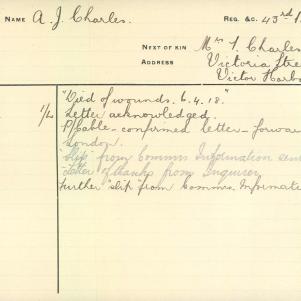 NAME A. J. Charles. REG. &C. 43rd
NEXT OF KIN Mrs Charles
ADDRESS Victoria Stre
Victor Harbo
"Died of wounds. 6.4.18."
1/L Letter acknowledged.
P/Cable - confirmed letter - forwar
London.
Slip from Comms Information sent
Letter of thanks from Inquirer
Further "slip" from Comms. Informatio